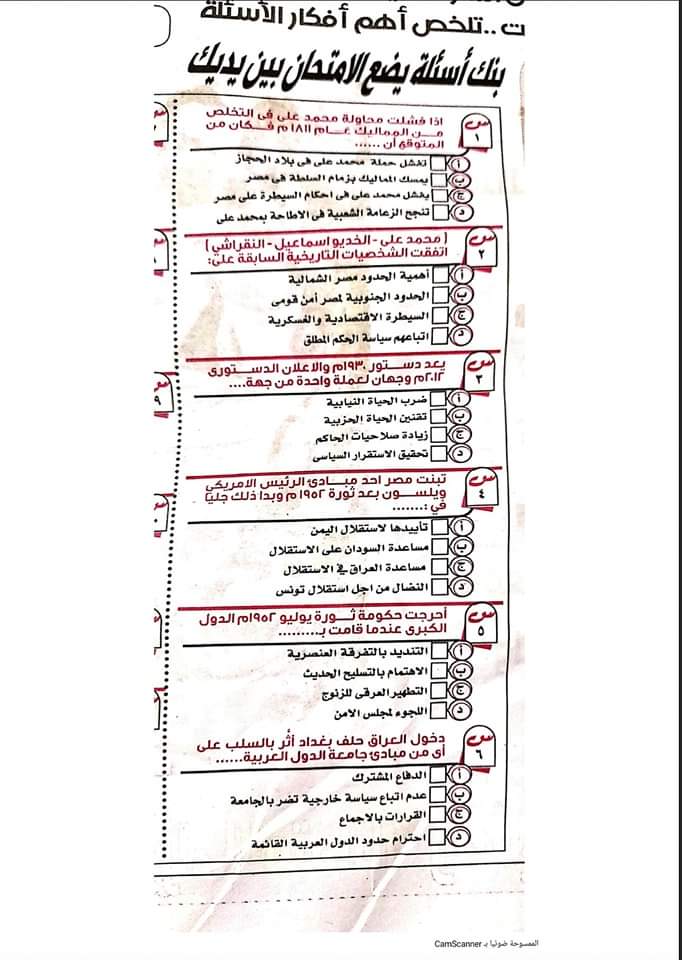 ت ..تلخص أهم أفكار الأسئلة
بنك أسئلة يضع الامتحان بين يديك
س ١
اذا فشلت محاولة محمد على فى التخلص
من المماليك عام ١٨١١ م فكان من
المتوقع أن ......
أ تفشل حملة محمد على فى بلاد الحجاز
ب يمسك المماليك بزمام السلطة فى مصر
ج يفشل محمد على فى احكام السيطرة على مصر
د تنجح الزعامة الشعبية فى الاطاحة بمحمد على
س ٢
( محمد على - الخديو اسماعيل - النقراشي )
اتفقت الشخصيات التاريخية السابقة على:
أ أهمية الحدود مصر الشمالية
ب الحدود الجنوبية لمصر أمن قومى
ج السيطرة الاقتصادية والعسكرية
د اتباعهم سياسة الحكم المطلق
س ٣
يعد دستور ١٩٣٠م والاعلان الدستورى
٢٠١٢م وجهان لعملة واحدة من جهة....
أ ضرب الحياة النيابية
ب تقنين الحياة الحزبية
ج زيادة صلاحيات الحاكم
د تحقيق الاستقرار السياسى
س ٤
تبنت مصر احد مبادئ الرئيس الامريكي
ويلسون بعد ثورة ١٩٥٢ م وبدا ذلك جليا
في :.......
أ تأييدها لاستقلال اليمن
ب مساعدة السودان على الاستقلال
ج مساعدة العراق في الاستقلال
د النضال من اجل استقلال تونس
س ٥
أحرجت حكومة ثورة يوليو ١٩٥٢م الدول
الكبرى عندما قامت بـ.........
أ التنديد بالتفرقة العنصرية
ب الاهتمام بالتسليح الحديث
ج التطهير العرقى للزنوج
د اللجوء لمجلس الامن
س ٦
دخول العراق حلف بغداد أثر بالسلب على
أى من مبادئ جامعة الدول العربية......
أ الدفاع المشترك
ب عدم اتباع سياسة خارجية تضر بالجامعة
ج القرارات بالاجماع
د احترام حدود الدول العربية القائمة
الممسوحة ضوئيا بـ CamScanner